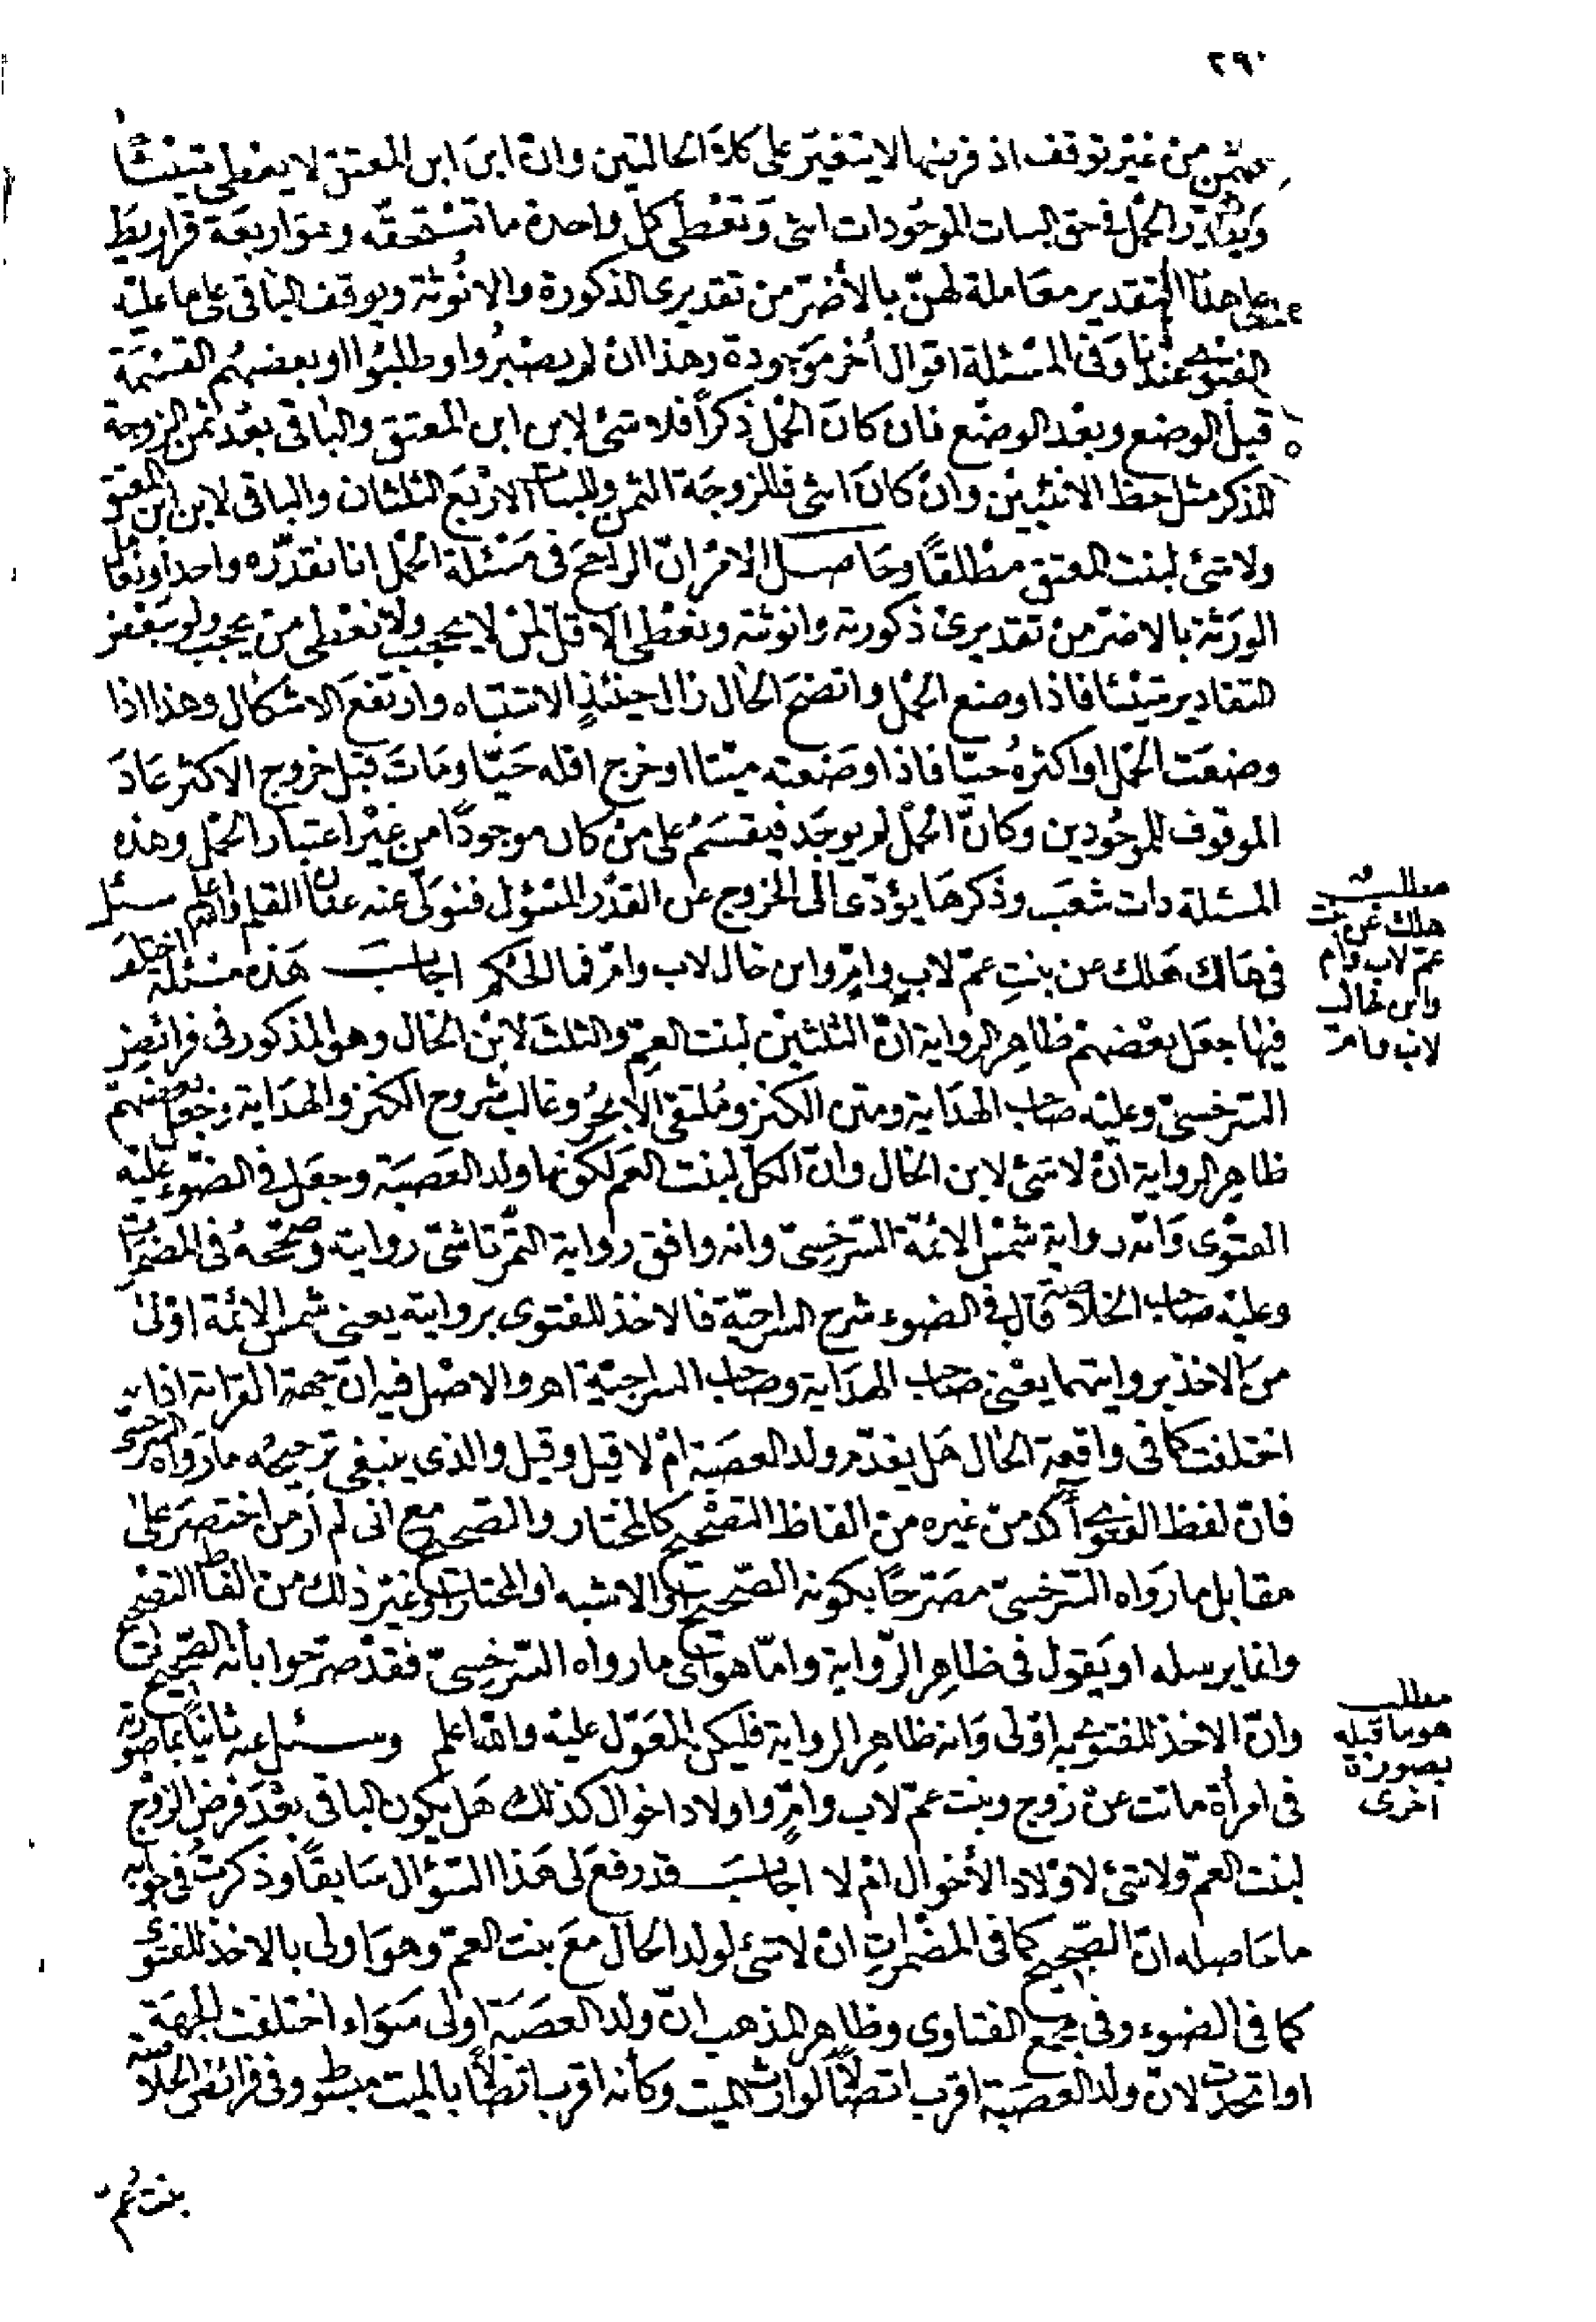 ٢٩٠
ثمنهن من غير توقف اذ فرضها لا يتغير على كلا الحالتين وان ابن ابن المعتق لا يعطى شيئا
ويقدر الحمل في حق البنات الموجودات انثى وتعطى كل واحدة ما تستحقه وهو اربعة قراريط
على هذا التقدير معاملة لهن بالأضر من تقديرى الذكورة والانوثة ويوقف الباقى على ما عليه
الفتوى عندنا وفى المسئلة اقوال أخر موجودة وهذا ان لم يصبروا وطلبوا او بعضهم القسمة
قبل الوضع وبعد الوضع فان كان الحمل ذكراً فلا شئ لابن ابن المعتق والباقى بعد ثمن الزوجة
للذكر مثل حظ الانثيين وان كان انثى فللزوجة الثمن وللبنات الاربع الثلثان والباقى لابن ابن المعتق
ولا شئ لبنت المعتق مطلقاً وحاصل الامر ان الراجح فى مسئلة الحمل انا نقدره واحدا ونعامل
الورثة بالاضر من تقديرى ذكورته وانوثته ونعطى الاقل لمن لا يحجب ولا نعطى من يحجب ولو ببعض
التقادير شيئا فاذا وضع الحمل واتضح الحال زال حينئذٍ الاشتباه وارتفع الاشكال وهذا اذا
وضعت الحمل او اكثره حيا فاذا وضعته ميتا او خرج اقله حيا ومات قبل خروج الاكثر عاد
الموقوف للموجودين وكان الحمل لم يوجد فيقسم على من كان موجوداً من غير اعتبار الحمل وهذه
المسئلة ذات شعب وذكرها يؤدى الى الخروج عن القدر المسئول فنولى عنه عنان القلم والله اعلم سئل
فى هالك هلك عن بنت عم لاب وام وابن خال لاب وام فما الحكم اجاب هذه مسئلة اختلف
فيها جعل بعضهم ظاهر الرواية ان الثلثين لبنت العم والثلث لابن الخال وهو المذكور فى فرائض
السرخسى وعليه صاحب الهداية ومتن الكنز وملتقى الابحر وغالب شروح الكنز والهداية وجعل بعضهم
ظاهر الرواية ان لا شئ لابن الخال وان الكل لبنت العم لكونها ولد العصبة وجعل فى الضوء عليه
الفتوى وانه رواية شمس الائمة السرخسى وانه وافق رواية التمرتاشى روايته وصححه فى المضمرات
وعليه صاحب الخلاصة قال فى الضوء شرح السراجية فالاخذ للفتوى بروايته يعنى شمس الائمة اولى
من الاخذ بروايتهما يعنى صاحب الهداية وصاحب السراجية اهـ والاصل فيه ان جهة القرابة اذا
اختلفت كما فى واقعة الحال هل يقدم ولد العصبة ام لا قيل وقيل والذى ينبغى ترجيحه ما رواه السرخسى
فان لفظ الفتوى أكد من غيره من الفاظ التصحيح كالمختار والصحيح مع انى لم أر من اختصر على
مقابل ما رواه السرخسى مصرحا بكونه الصحيح او الاشبه او المختار او غير ذلك من الفاظ التصحيح
وانما يرسله او يقول فى ظاهر الرواية واما هو اى ما رواه السرخسى فقد صرحوا بأنه الصحيح
وان الاخذ للفتوى به اولى وانه ظاهر الرواية فليكن المعول عليه والله اعلم وسئل عنه ثانياً بما صورته
فى امرأة ماتت عن زوج وبنت عم لاب وام واولاد اخوال كذلك هل يكون الباقى بعد فرض الزوج
لبنت العم ولا شئ لاولاد الأخوال ام لا اجاب قد رفع لى هذا السؤال سابقاً وذكرت فى جوابه
ما حاصله ان الصحيح كما فى المضمرات ان لا شئ لولد الخال مع بنت العم وهو اولى بالاخذ للفتوى
كما فى الضوء وفى مجمع الفتاوى وظاهر المذهب ان ولد العصبة اولى سواء اختلفت الجهة
او اتحدت لان ولد العصبة اقرب اتصالاً لوارث الميت وكأنه اقرب اتصالاً بالميت مبسوط وفى فرائض الخلاصة
بنت عم
مطلب
هلك عن بنت
عم لاب وام
وابن خال
لاب وام
مطلب
هو ما قبله
بصورة
اخرى